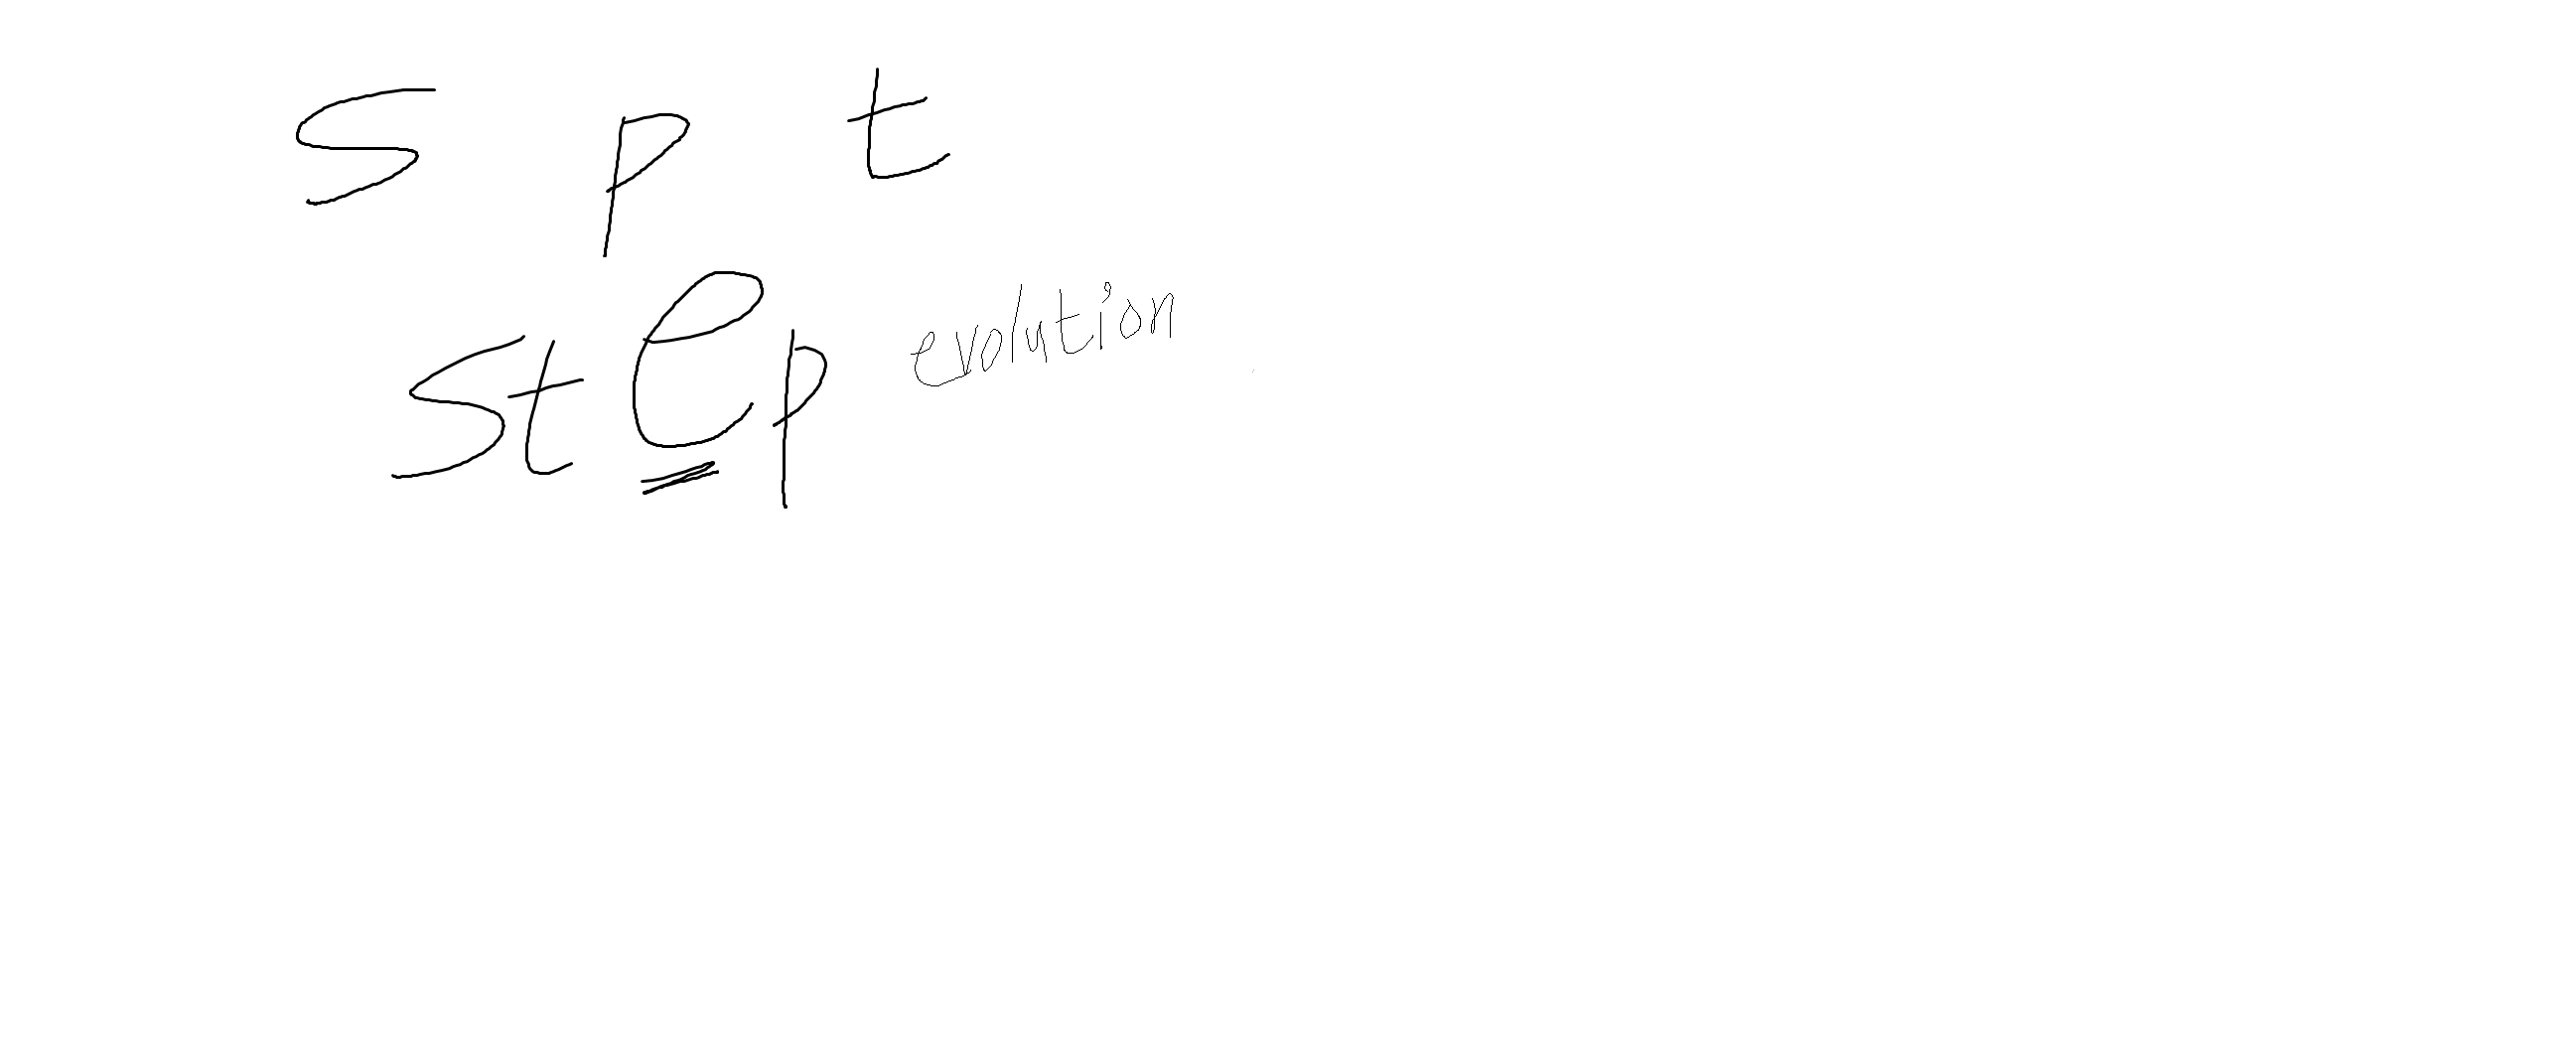 s p t
step evolution